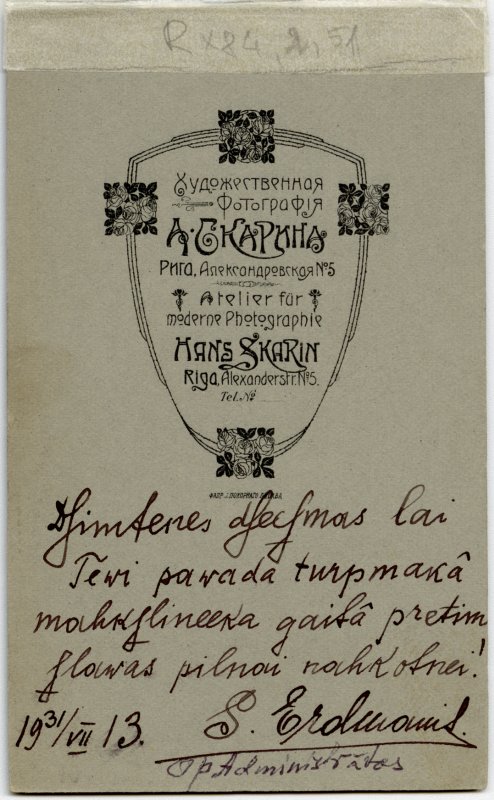 R x84 2,51
Художественная
Фотографія
А·СКАРИНА
Рига, Александровская №5
Atelier für
moderne Photographie
HANS SKARIN
Riga, Alexanderstr. №5.
Tel. №
Dſimtenes dſeeſmas lai
Tewi pawada turpmakâ
mahkſlineeka gaitâ pretim
ſlawas pilnai nahkotnei!
19 31/VII 13. S. Erdmanis.
Administrâtos